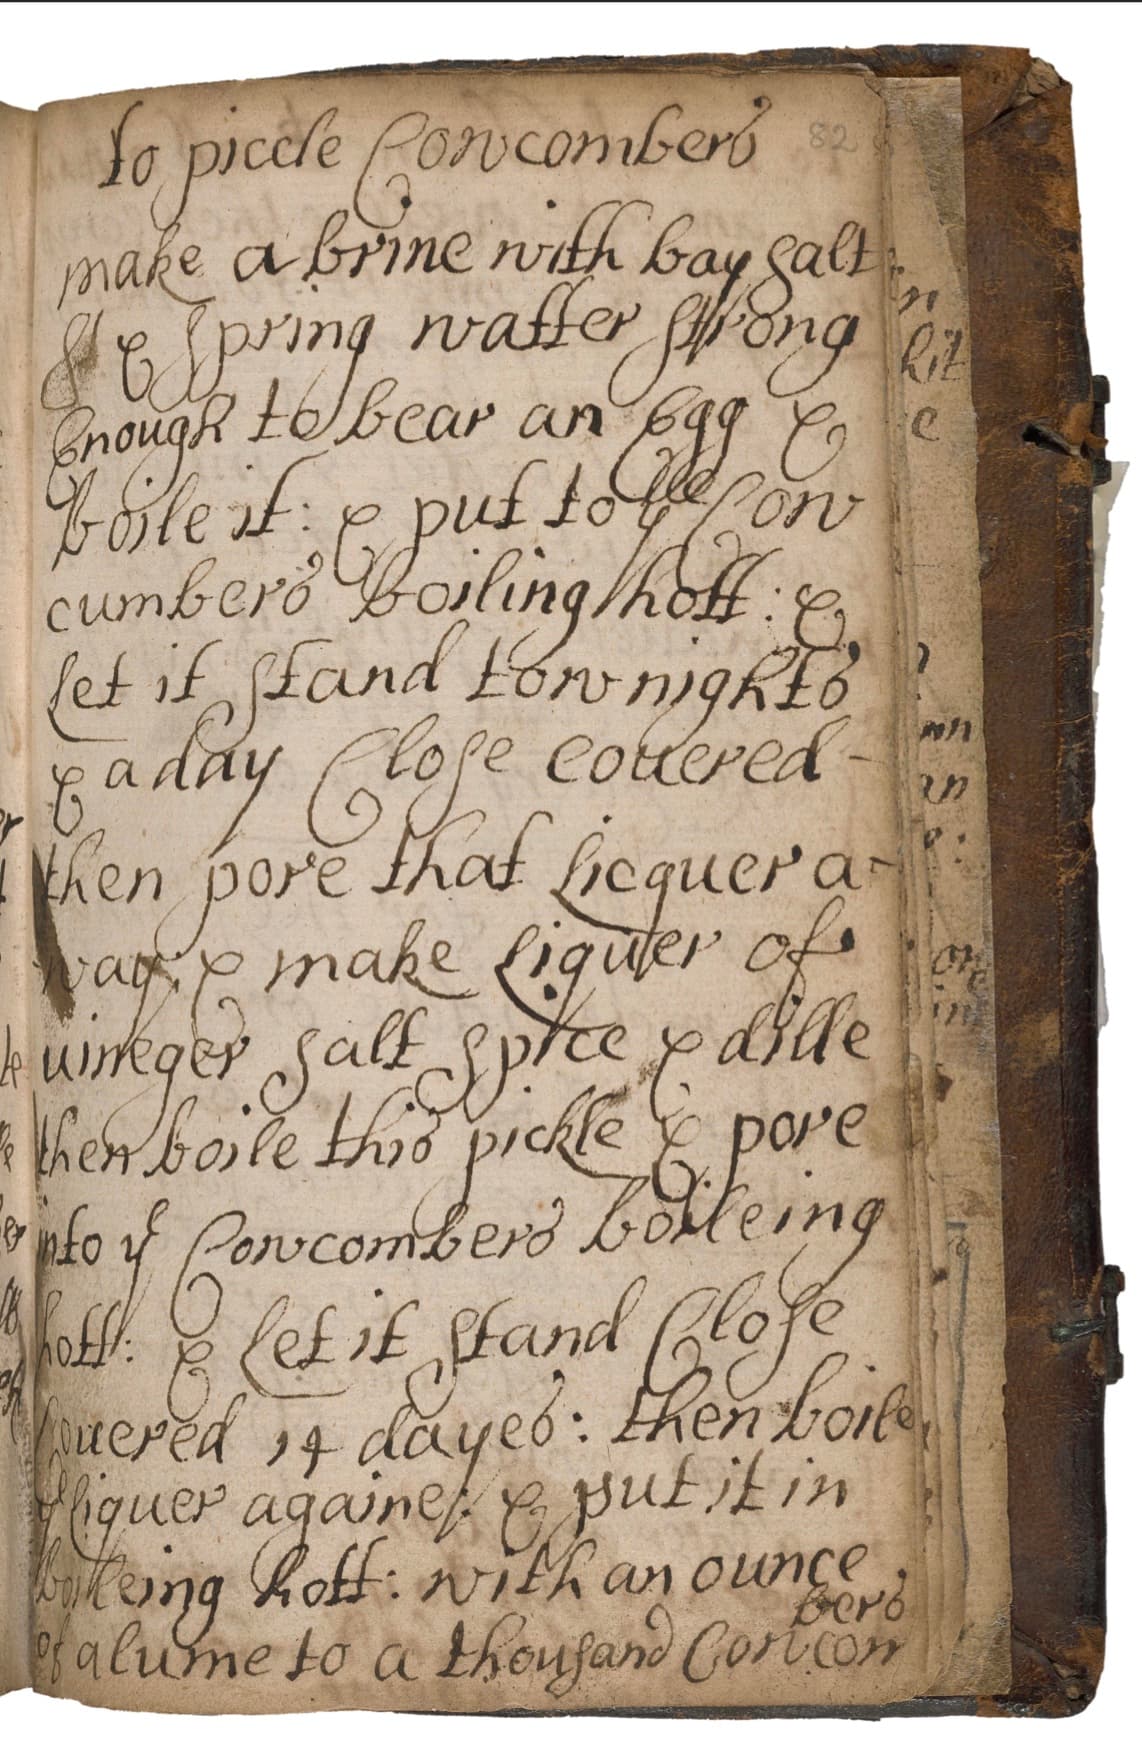 to piccle Cowcombers 82
make a brine with bay salt
& spring watter strong
Enough to bear an Egg &
boile it: & put to ye Cow
cumbers boiling hott: &
Let it stand tow nights
& a day Close couered -
then pore that Licquer a-
way & make Liquer of
uineger salt spice & dille
then boile this pickle & pore
into ye Cowcombers boileing
hott: & Let it stand Close
Couered 14 dayes: then boile
ye liquer againe: & put it in
boileing hott: with an ounce
bers
of alume to a thousand Cowcom